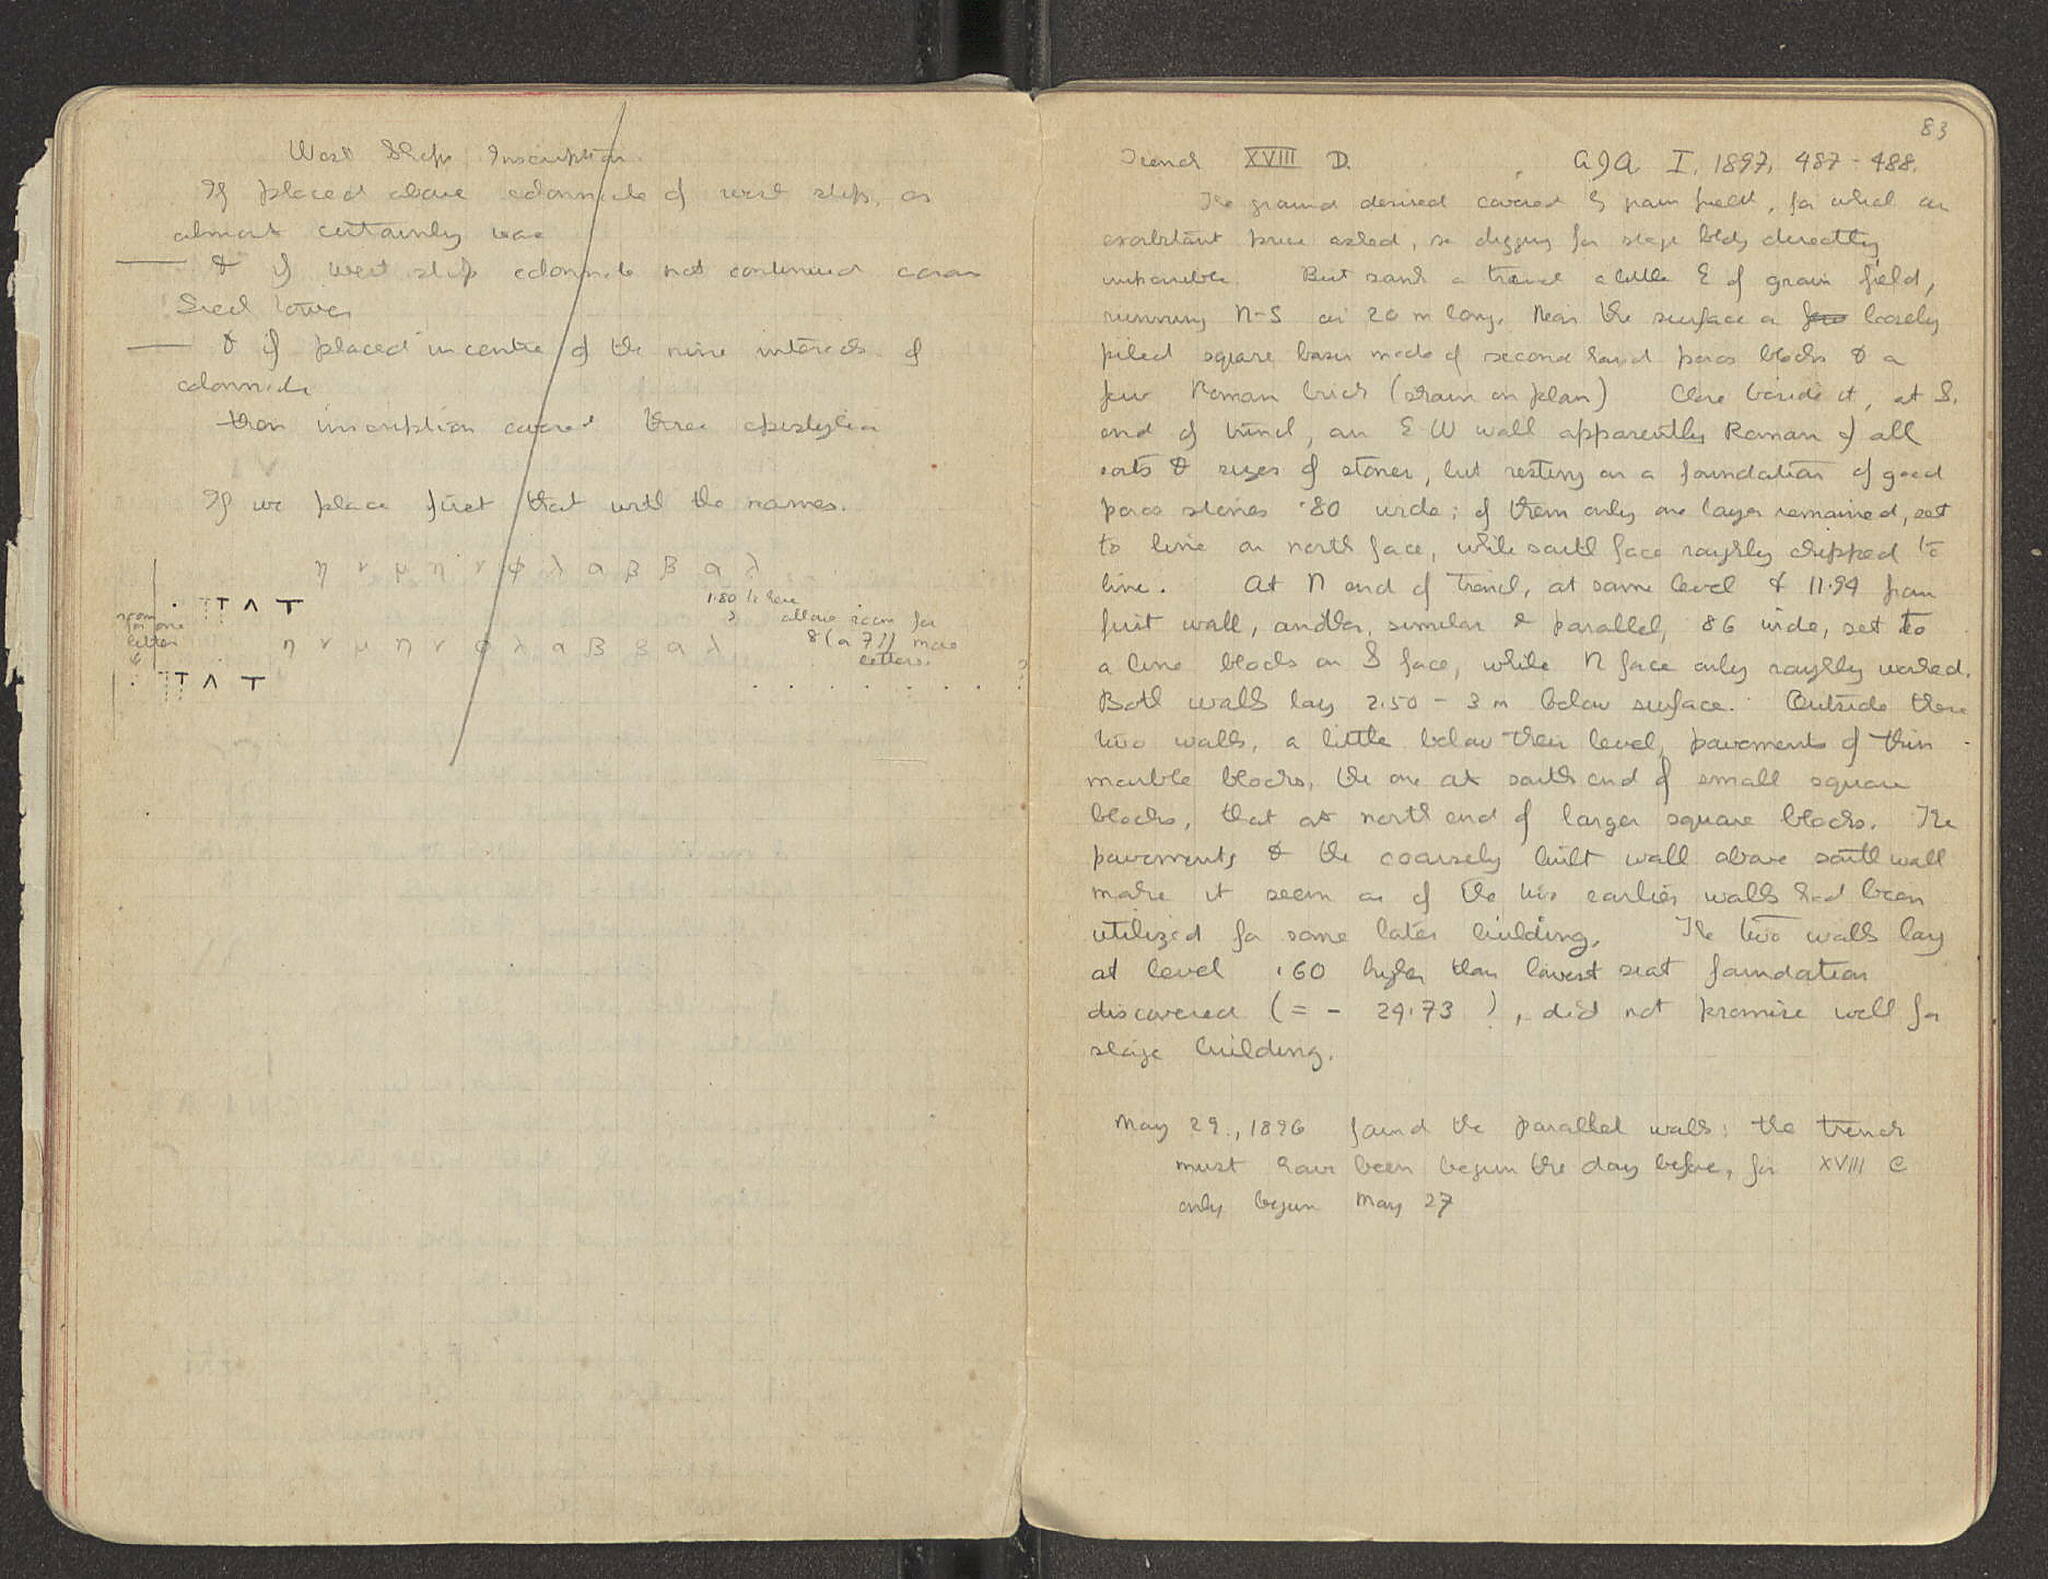 West Shops Inscription.
If placed above colonnade of west shops, as
almost certainly was
— & if west shop colonnade not continued across
lower
— & if placed in centre of the nine intervals of
colonnade
then inscription covered three epistylia
If we place first that with the names.
η ν μ η ν φ λ α β β α λ
. Τ Τ Λ Τ
room for one letter
1.80 to here
?
allow room for
8 (or 7?) more
letters.
η ν μ η ν φ λ α β β α λ
. Τ Τ Λ Τ . . . . . . . . ?
83
Trench XVIII D. AJA I, 1897, 487-488.
The ground desired covered by grain field, for which an
exorbitant price asked, so digging for stage bldg directly
impossible. But sank a trench a little E of grain field,
running N-S ca 20 m long. Near the surface a few loosely
piled square basin made of second hand poros blocks & a
few Roman brick (shown on plan) Close beside it, at S.
end of trench, an E W wall apparently Roman of all
sorts & sizes of stones, but resting on a foundation of good
poros stones .80 wide; of them only one layer remained, set
to line on north face, while south face roughly chipped to
line. At N end of trench, at same level & 11.94 from
first wall, another, similar & parallel, 86 wide, set to
a line blocks on S face, while N face only roughly worked.
Both walls lay 2.50 - 3 m below surface. Outside these
two walls, a little below their level, pavements of thin
marble blocks, the one at south end of small square
blocks, that at north end of larger square blocks. The
pavements & the coarsely built wall above south wall
make it seem as if the two earlier walls had been
utilized for some later building. The two walls lay
at level .60 higher than lowest seat foundation
discovered (= - 29.73 ), did not promise well for
stage building.
May 29, 1896 found the parallel walls: the trench
must have been begun the day before, for XVIII C
only begun May 27